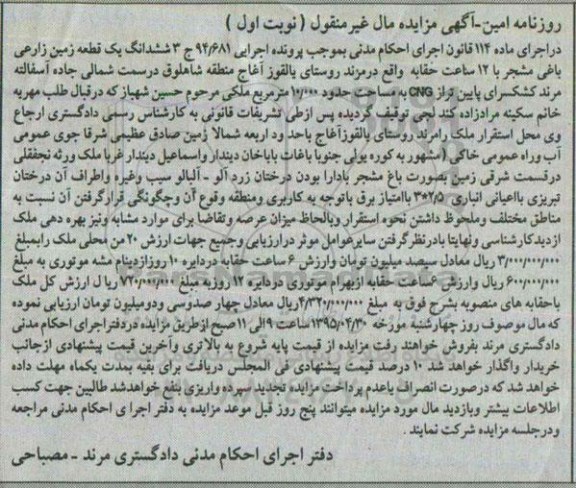 روزنامه امین-آگهی مزایده مال غیرمنقول ( نوبت اول )
دراجرای ماده ۱۱۴ قانون اجرای احکام مدنی بموجب پرونده اجرایی ۹۴/۶۸۱ج ۳ ششدانگ یک قطعه زمین زارعی
باغی مشجر با ۱۲ ساعت حقابه واقع درمرند روستای یالقوز آغاج منطقه شاهلوق درسمت شمالی جاده آسفالته
مرند کشکسرای پایین تراز CNG به مساحت حدود ۱۰٫۰۰۰ مترمربع ملکی مرحوم حسین شهباز که درقبال طلب مهریه
خانم سکینه مرادزاده کند لجی توقیف گردیده پس ازطی تشریفات قانونی به کارشناس رسمی دادگستری ارجاع
وی محل استقرار ملک رامرند روستای یالقوزآغاج باحد ود اربعه شمالا زمین صادق عظیمی شرقا جوی عمومی
آب وراه عمومی خاکی (مشهور به کوره یولی جنوبا باغات باباخان دیندار واسماعیل دیندار غربا ملک ورثه نجفقلی
درقسمت شرقی زمین بصورت باغ مشجر بادارا بودن درختان زرد آلو - آلبالو سیب وغیره واطراف آن درختان
تبریزی بااعیانی انباری ۳*۲/۵ باامتیاز برق باتوجه به کاربری ومنطقه وقوع آن وچگونگی قرارگرفتن آن نسبت به
مناطق مختلف وملحوظ داشتن نحوه استقرار وبالحاظ میزان عرصه وتقاضا برای موارد مشابه ونیز بهره دهی ملک
ازدیدکارشناسی ونهایتا بادرنظرگرفتن سایرعوامل موثر درارزیابی وجمیع جهات ارزش ۲۰ من محلی ملک رابمبلغ
۳/۰۰۰/۰۰۰/۰۰۰ ریال معادل سیصد میلیون تومان وارزش ۶ ساعت حقابه دردایره ۱۰ روزازدینام مشه موتوری به مبلغ
۶۰۰/۰۰۰/۰۰۰ ریال وارزش ۶ساعت حقابه ازبهرام موتوری دردایره ۱۲ روزبه مبلغ ۷۲۰/۰۰۰/۰۰۰ ریا ل ارزش کل ملک
باحقابه های منصوبه بشرح فوق به مبلغ ۴/۳۲۰/۰۰۰/۰۰۰ریال معادل چهار صدوسی ودومیلیون تومان ارزیابی نموده
که مال موصوف روز چهارشنبه مورخه ۱۳۹۵/۰۴/۳۰ ساعت ۹الی ۱۱صبح ازطریق مزایده دردفتراجرای احکام مدنی
دادگستری مرند بفروش خواهند رفت مزایده از قیمت پایه شروع به بالاتری وآخرین قیمت پیشنهادی ازجانب
خریدار واگذار خواهد شد ۱۰ درصد قیمت پیشنهادی فی المجلس دریافت برای بقیه بمدت یکماه مهلت داده
خواهد شد که درصورت انصراف یاعدم پرداخت مزایده تجدید سپرده واریزی بنفع خواهدشد طالبین جهت کسب
اطلاعات بیشتر وبازدید مال مورد مزایده میتوانند پنج روز قبل موعد مزایده به دفتر اجرا ی احکام مدنی مراجعه
ودرجلسه مزایده شرکت نمایند .
دفتر اجرای احکام مدنی دادگستری مرند - مصباحی